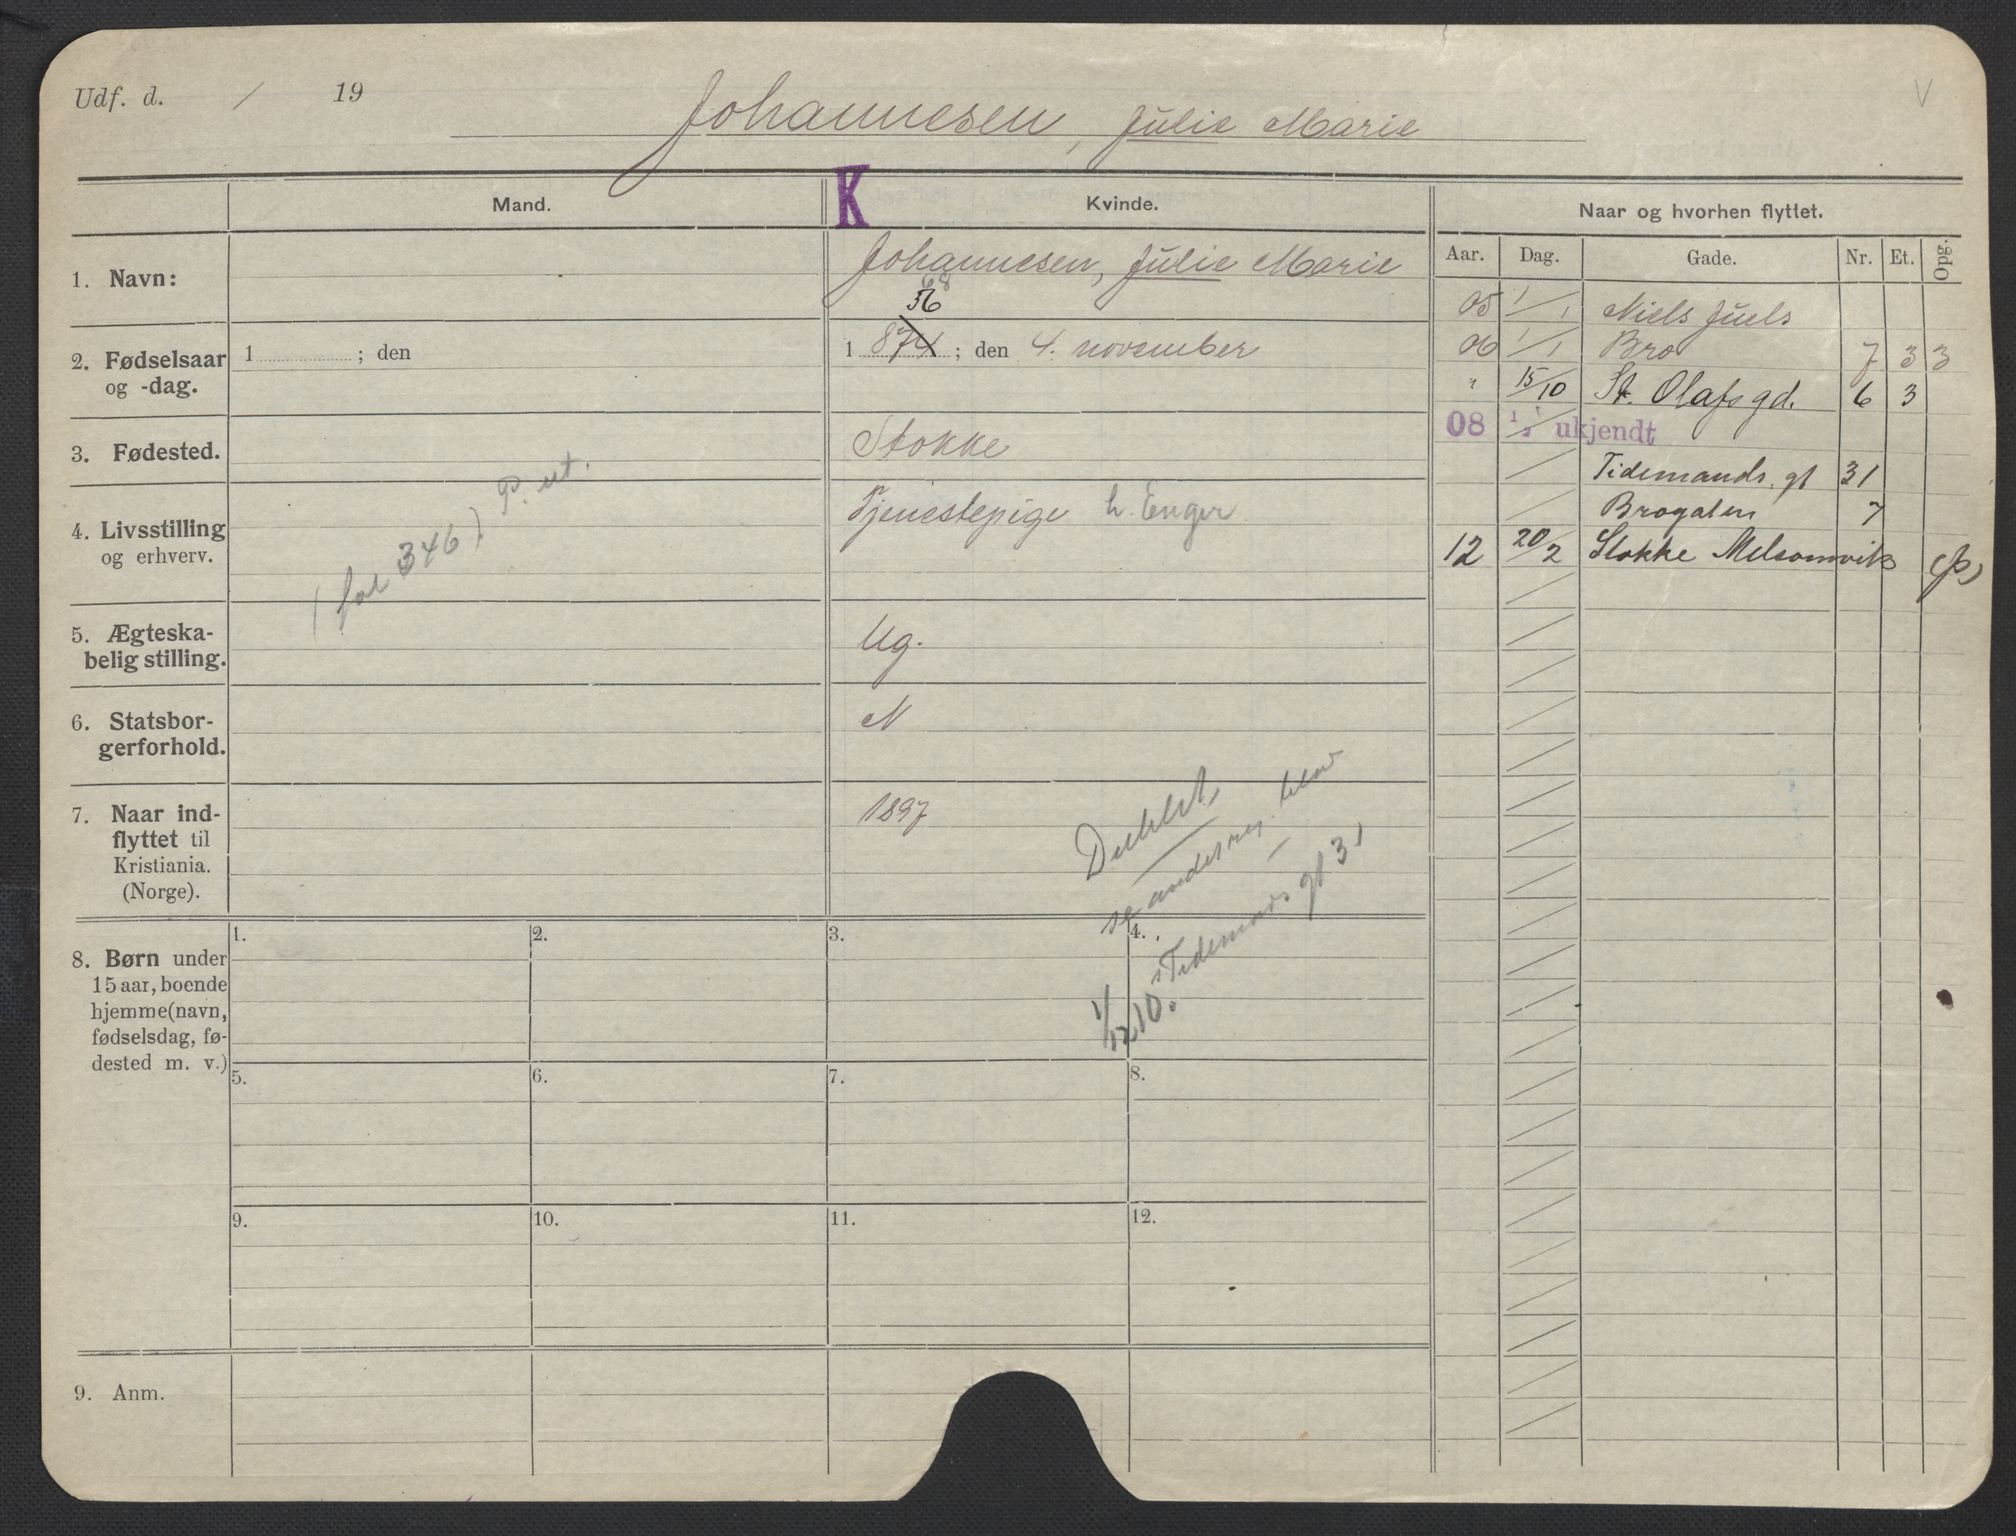 Udf. d. / 19
Johannesen, Julie Marie
V
K
Mand.
Kvinde.
Naar og hvorhen flyttet.
Aar. Dag. Gade. Nr. Et. Opg.
1. Navn:
Johannesen, Julie Marie
68
56
2. Fødselsaar
og -dag.
1 ; den
1 874 ; den 4. november
3. Fødested.
Stokke
4. Livsstilling
og erhverv.
Tjenestepige h. Enger
(fol 346) P. ut.
5. Ægteska-
belig stilling.
Ug.
6. Statsbor-
gerforhold.
N
7. Naar ind-
flyttet til
Kristiania.
(Norge).
1897
Dublet,
se andes reg.
1/12 10. Tidemands gt 31
05 1/1 Niels Juels
06 1/1 Bro 7 3 3
" 15/10 St. Olafs gd. 6 3
08 1/2 ukjendt
Tidemands. gt 31
Brogaten 7
12 20/2 Stokke Melsomvik (P)
8. Børn under
15 aar, boende
hjemme (navn,
fødselsdag, fø-
dested m. v.)
1. 2. 3. 4.
5. 6. 7. 8.
9. 10. 11. 12.
9. Anm.